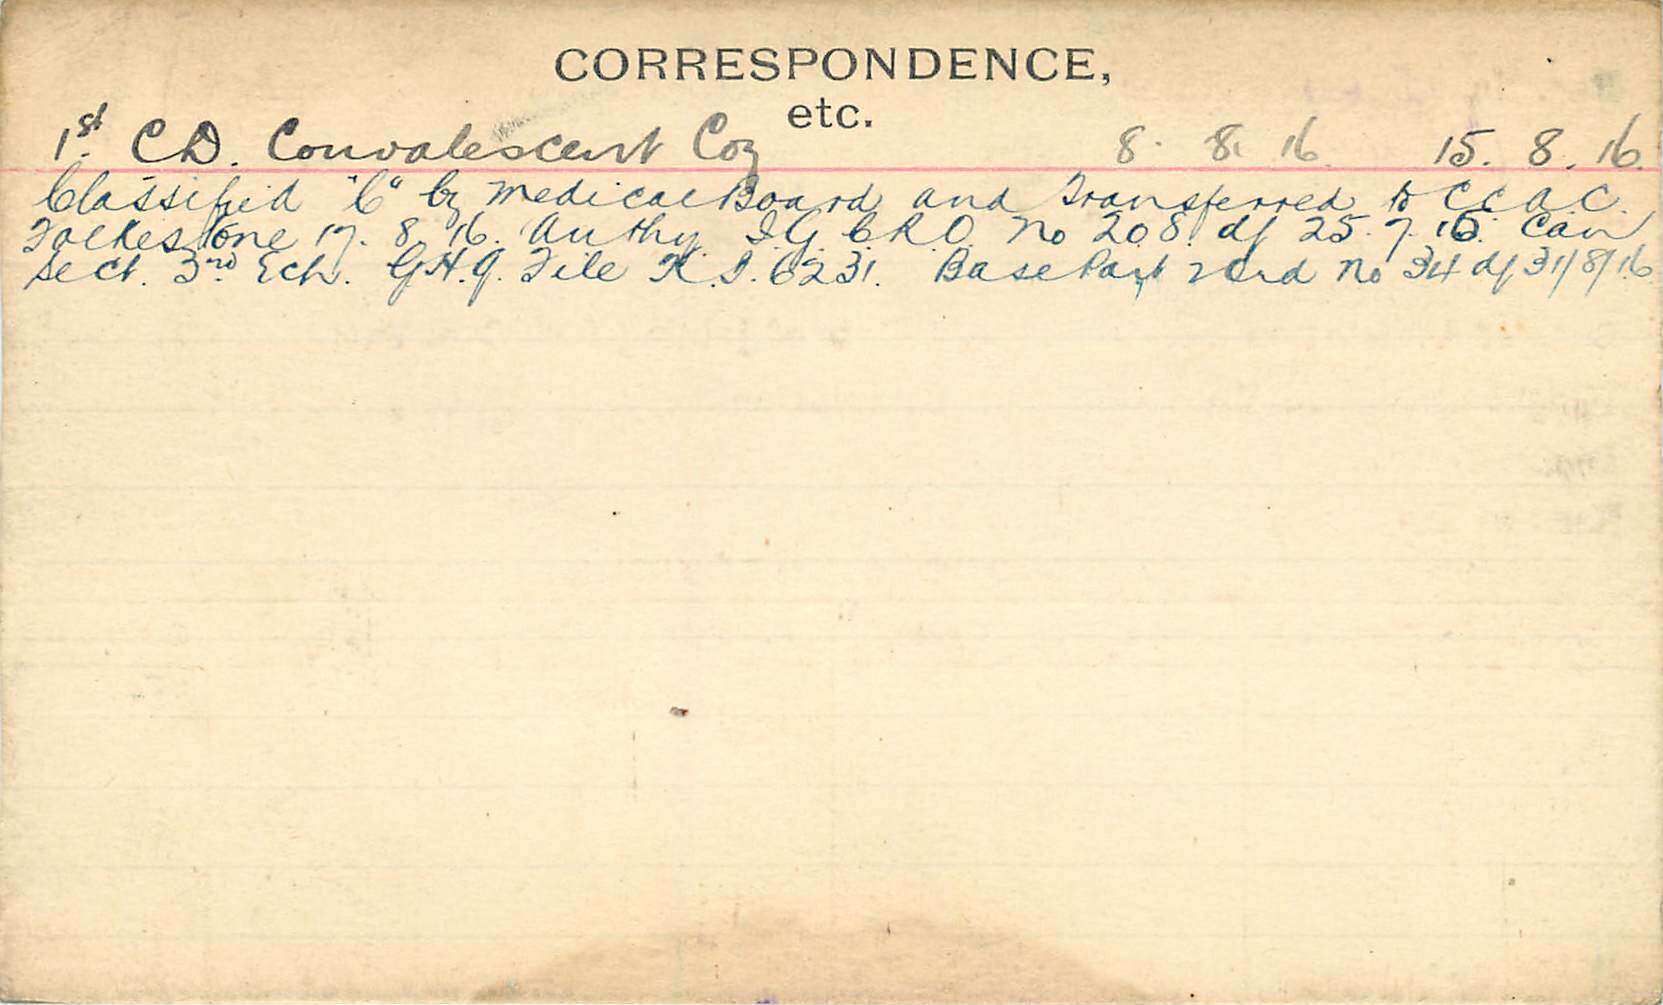 CORRESPONDENCE,
etc.
1st. C.D. Convalescent Coy 8. 8. 16. 15. 8. 16.
Classified "C" by Medical Board and Transferred to C.C.A.C.
Folkestone 17. 8. 16. Authy. I.G. C.R.O. No 208. d/ 25. 7. 16. Can
Sect. 3rd Ech. G.H.Q. File K.I. 6231. Base Part 2 Ord No 34 d/ 31/8/16